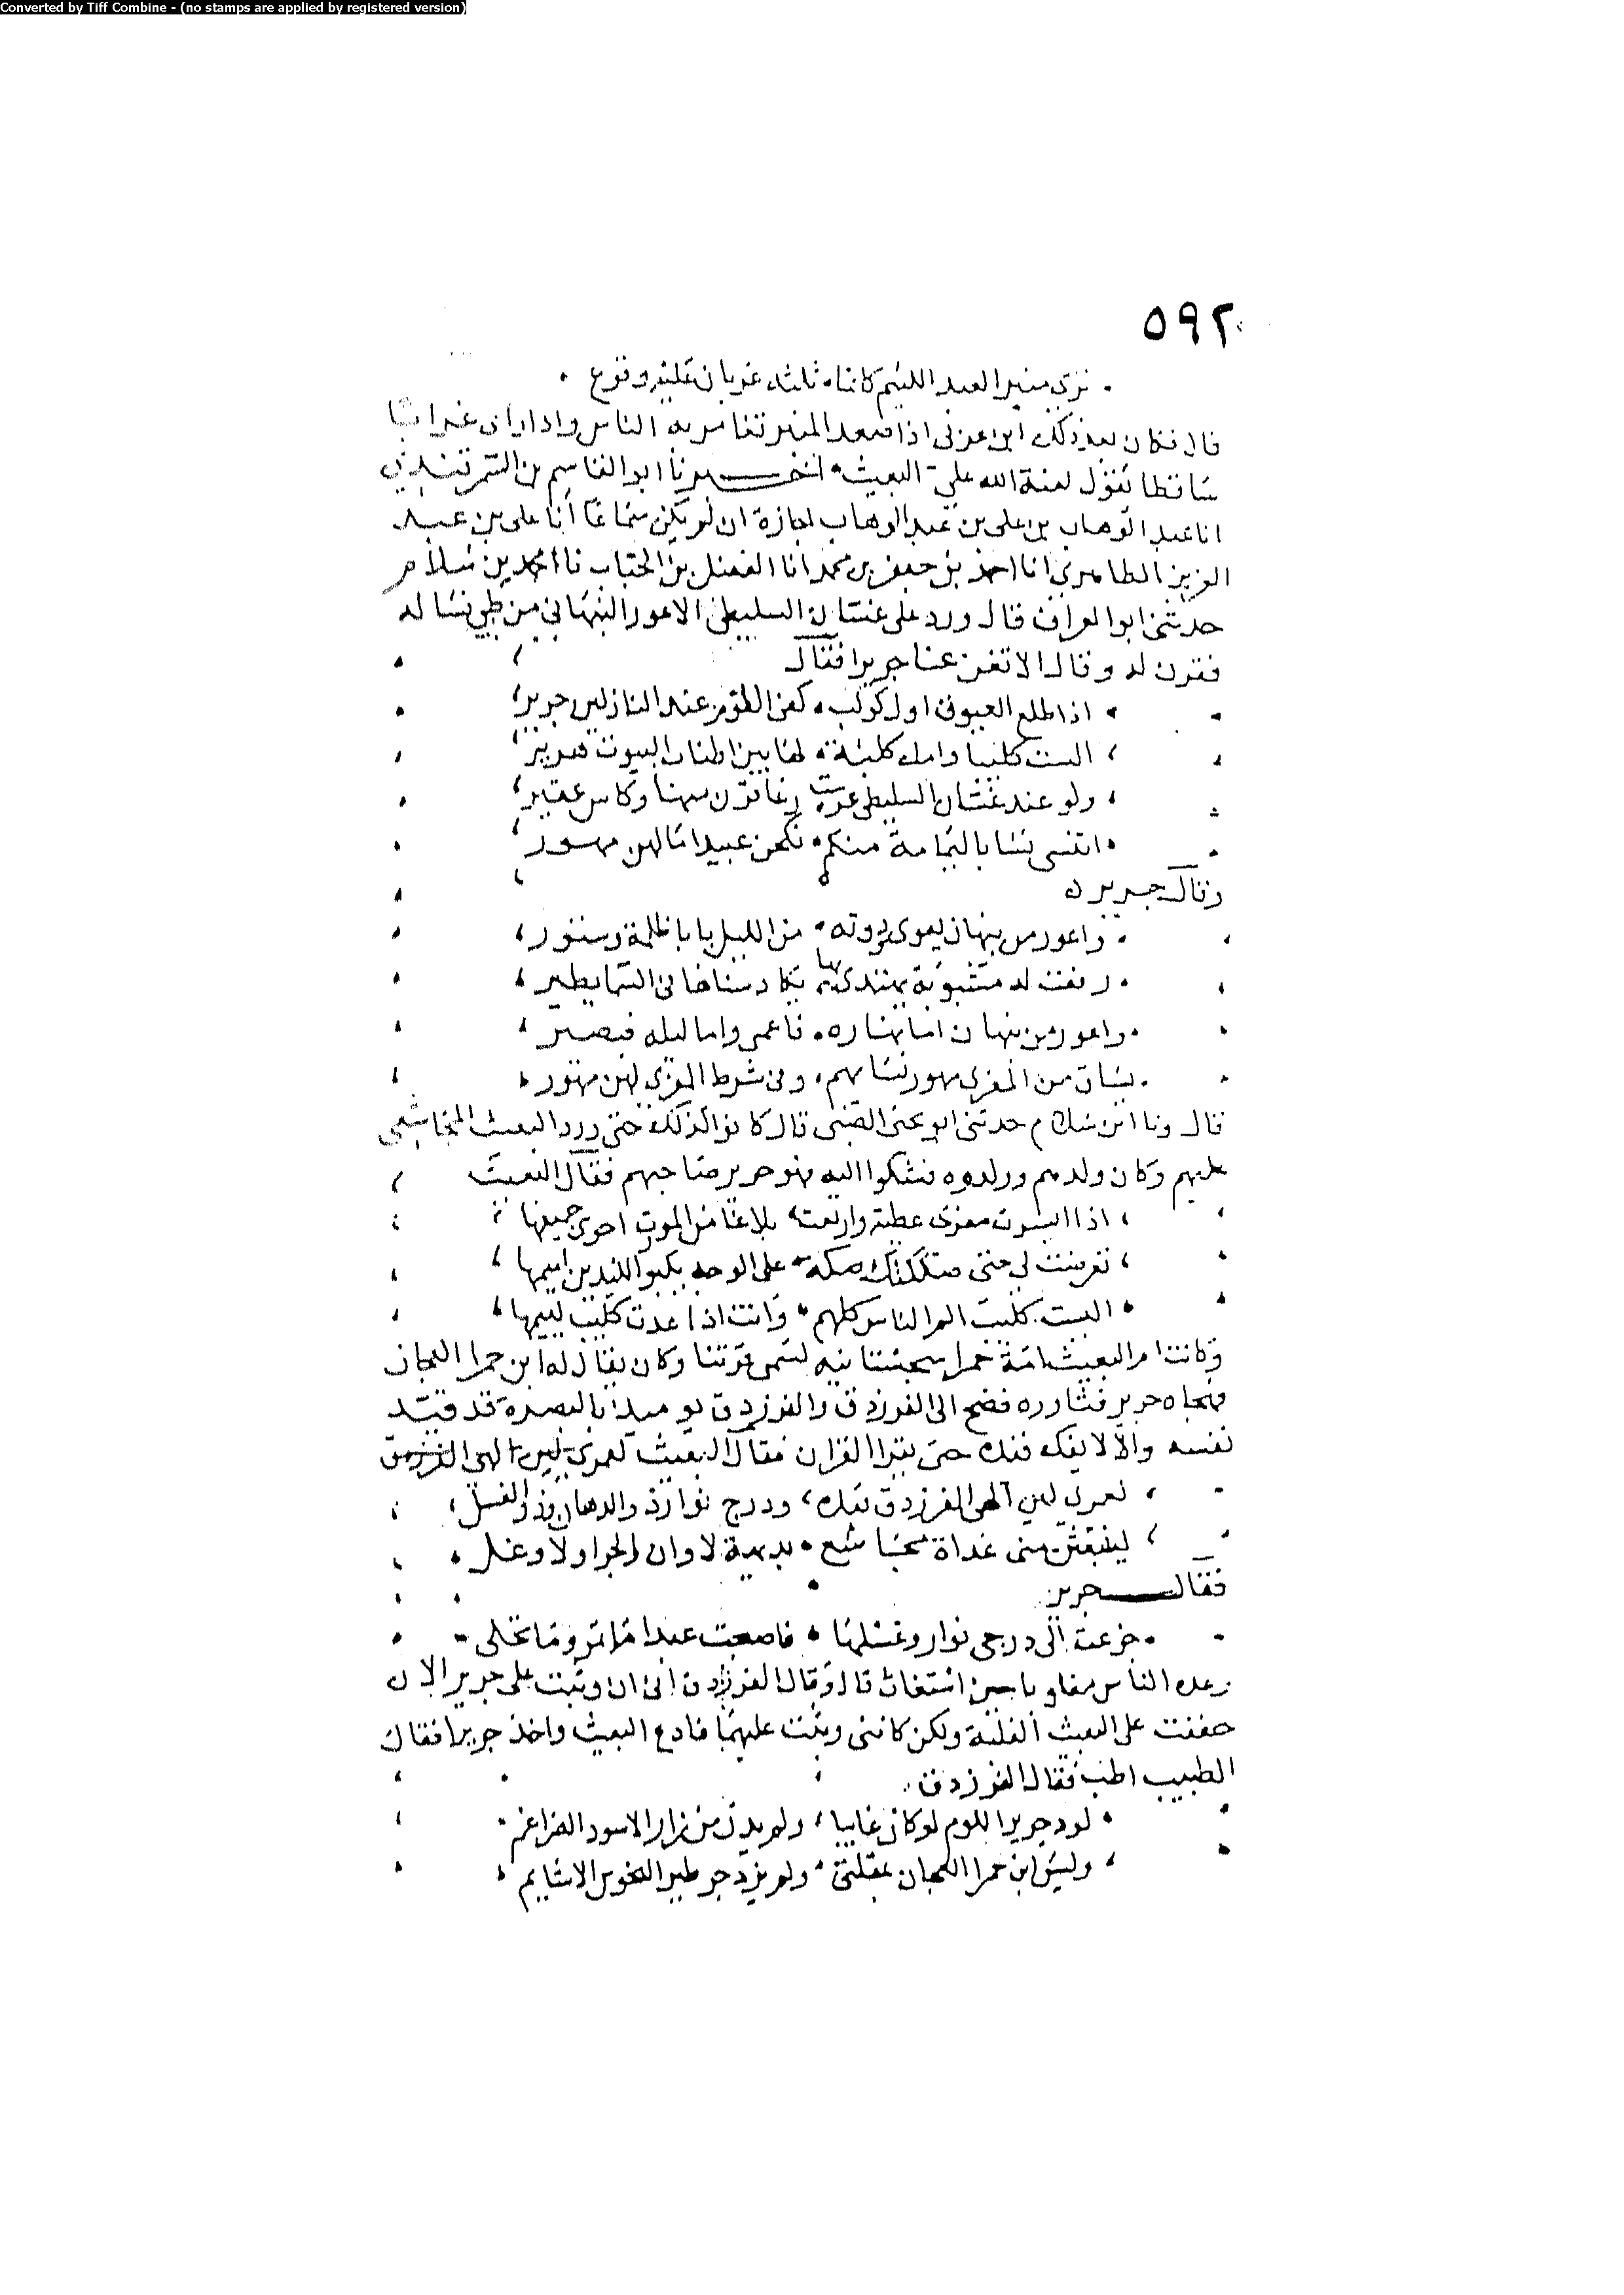 Converted by Tiff Combine - (no stamps are applied by registered version)
٥٩٢
ترى منبر العبد اللئيم كانما ثلثه غربان عليه وقوع
قال فكان بعد ذلك ابن عربي اذا صعد المنبر تغامز به الناس واذا راى غرابا
ساقطا يقول لعنة الله على البعيث اخبرنا ابو القاسم بن السمرقندي
انا عبد الوهاب بن علي بن عبد الوهاب اجازة ان لم يكن سماعا أنا علي بن عبد
العزيز الطاهري انا احمد بن جعفر بن محمد انا الفضل بن الحباب نا محمد بن سلام
حدثني ابو العراف قال ورد على غسان السليطي الاعور النبهاني من طي نسا له
فقرن له وقال الا تغن عنا جريرا فقال
اذا طلع العيوق اول كوكب كفى اللؤم عند النازلين جرير
الست كليبا وامك كلبة لها بين اطناب البيوت هرير
ولو عند غسان السليطي عرست رغا قرن منها وكاس عقير
اتنسى نسا باليمامة منكم نكحن عبيدا ما لهن مهور
وقال جرير
واعور من نبهان يعوي ودونه من الليل بابا ظلمة وستور
رفعت له مشبوبة يهتدى بها يكاد سناها في السما يطير
واعور من نبهان اما نهاره فاعمى واما ليله فبصير
يساق من المعزى مهور نسايهم وفي شرط المعزى لهن مهور
قال ونا ابن سلام حدثني ابو يحيى الضبي قال كانوا كذلك حتى ورد البعيث المجاشعي
عليهم وكان ولدهم وولدوه فشكوا اليه فهو جرير صاحبهم فقال البعيث
اذا ايسرت معزى عطية وارتعت تلاعا من الموت احوى جميمها
تعرضت لي حتى صككتك صكة على الوجه يكبو لليدين اميمها
اليست كليب الم الناس كلهم وانت اذا عدت كليب لييمها
وكانت ام البعيث امة حمرا سجستانيه تسمى فرتنا وكان يقال له ابن حمرا العجان
فهجاه جرير فثاوره فضج الى الفرزدق والفرزدق يوميذ بالبصرة قد قيد
نفسه والا لا يفك قيده حتى يقرا القران فقال البعيث لعمري لين الهى الفرزدق
لعمري لين الهى الفرزدق قيده ودرج نوار ذو الدهان وذو الغسل
ليبتعثن مني غداة مجاشع بديهة لا وان الجرا ولا وغل
فقال جرير
جزعت الى درجي نوار وغسلها فاصبحت عبدا ما تمر وما تحلي
وعده الناس مغلوبا حين استغاث قال وقال الفرزدق اني ان وثبت على جرير الان
حققت على البعيث الغلبة ولكن كاني وثبت عليهما فادع البعيث واخذ جريرا فقال
الطبيب اطب فقال الفرزدق
لود جريرا للوم لو كان غايبا ولم يدن من زار الاسود الضراغم
وليس ابن حمرا العجان بمفلتي ولم يزدجر طير النحوس الاشايم